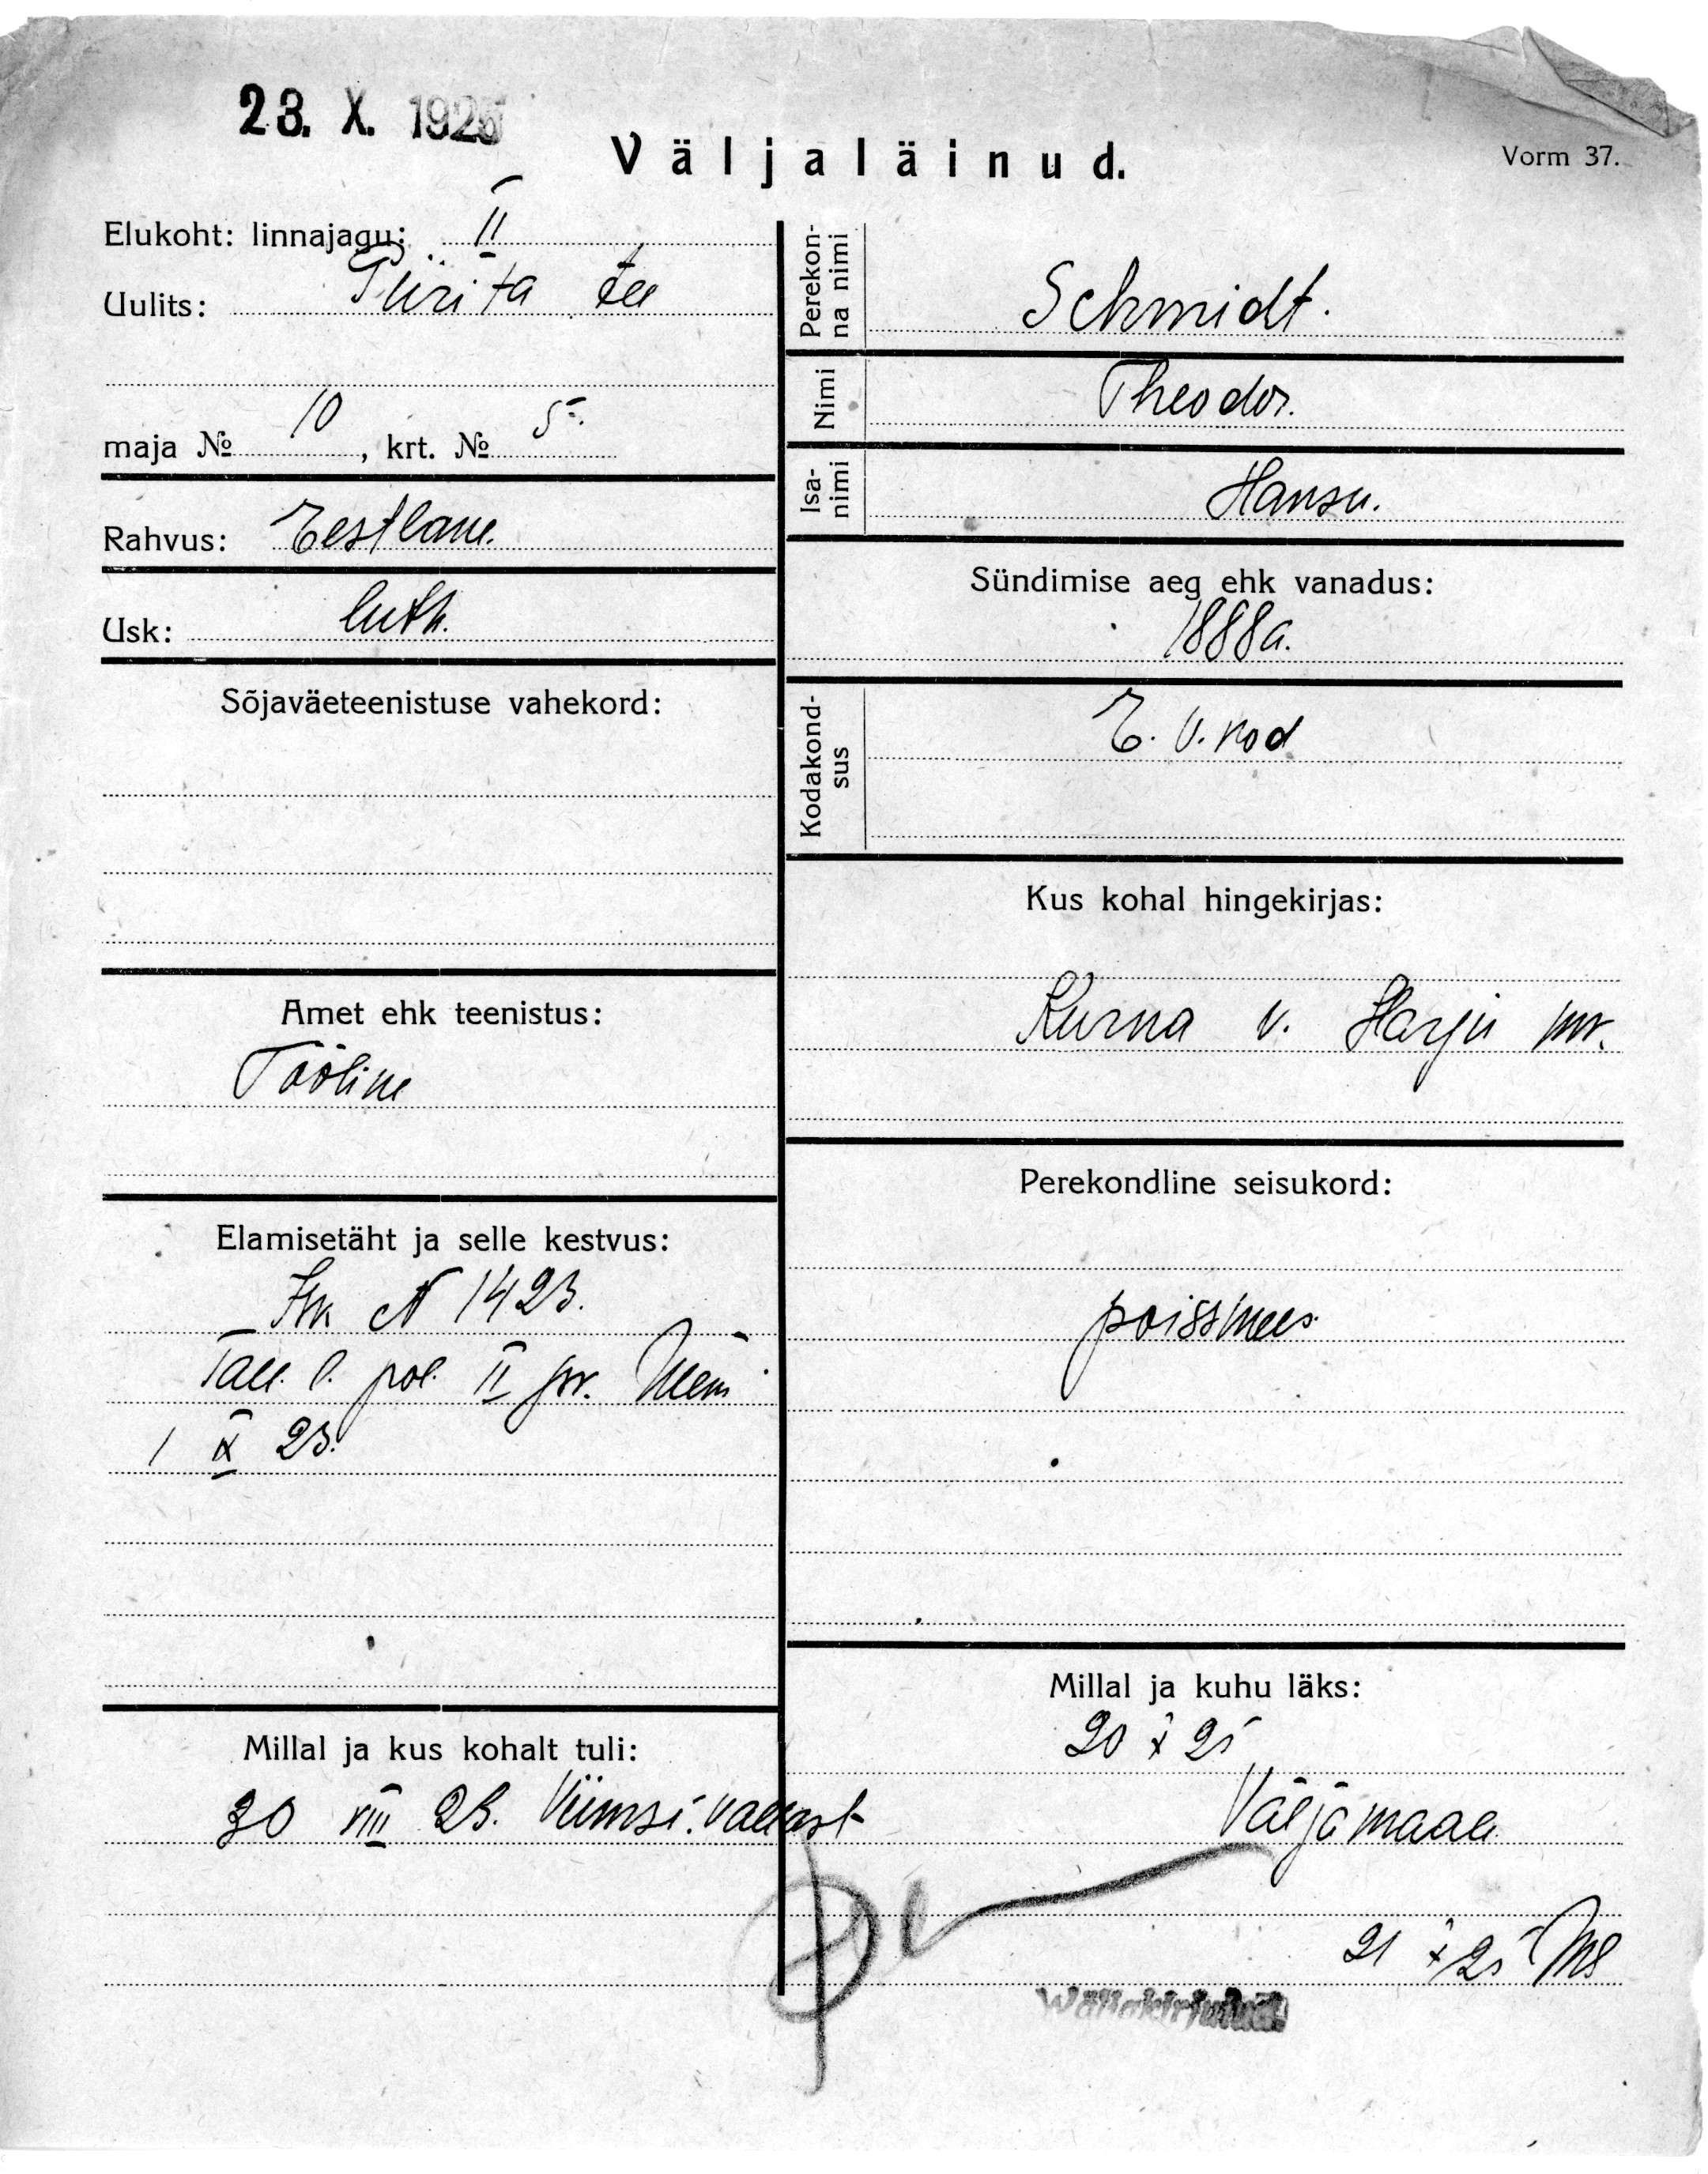 23. X. 1925
Väljaläinud.
Vorm 37.
Elukoht: linnajagu: II
Uulits: Piirita tee
maja № 10, krt. № 5
Rahvus: Eestlane.
Usk: luth.
Sõjaväeteenistuse vahekord:
Amet ehk teenistus:
Tööline
Elamisetäht ja selle kestvus:
N 1423.
Tall. l. pol. II jsk.
1 X 23.
Millal ja kus kohalt tuli:
30 VIII 23. Viimsi vallast
Perekonna nimi
Schmidt.
Nimi
Theodor.
Isanimi
Hansu.
Sündimise aeg ehk vanadus:
1888a.
Kodakondsus
E. V. kod
Kus kohal hingekirjas:
Kurna v. Harju mk.
Perekondline seisukord:
poissmees
Millal ja kuhu läks:
20 X 25
Väljamaale
21 X 25
Wäljakirjutud.